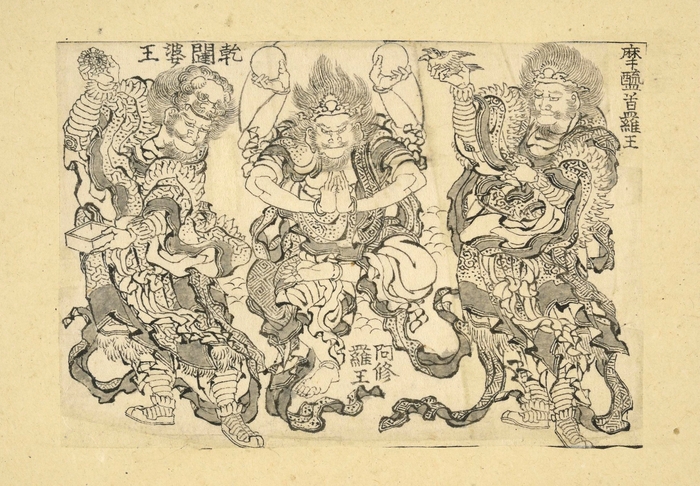 摩醯首羅王
阿修
羅王
乾闥婆王